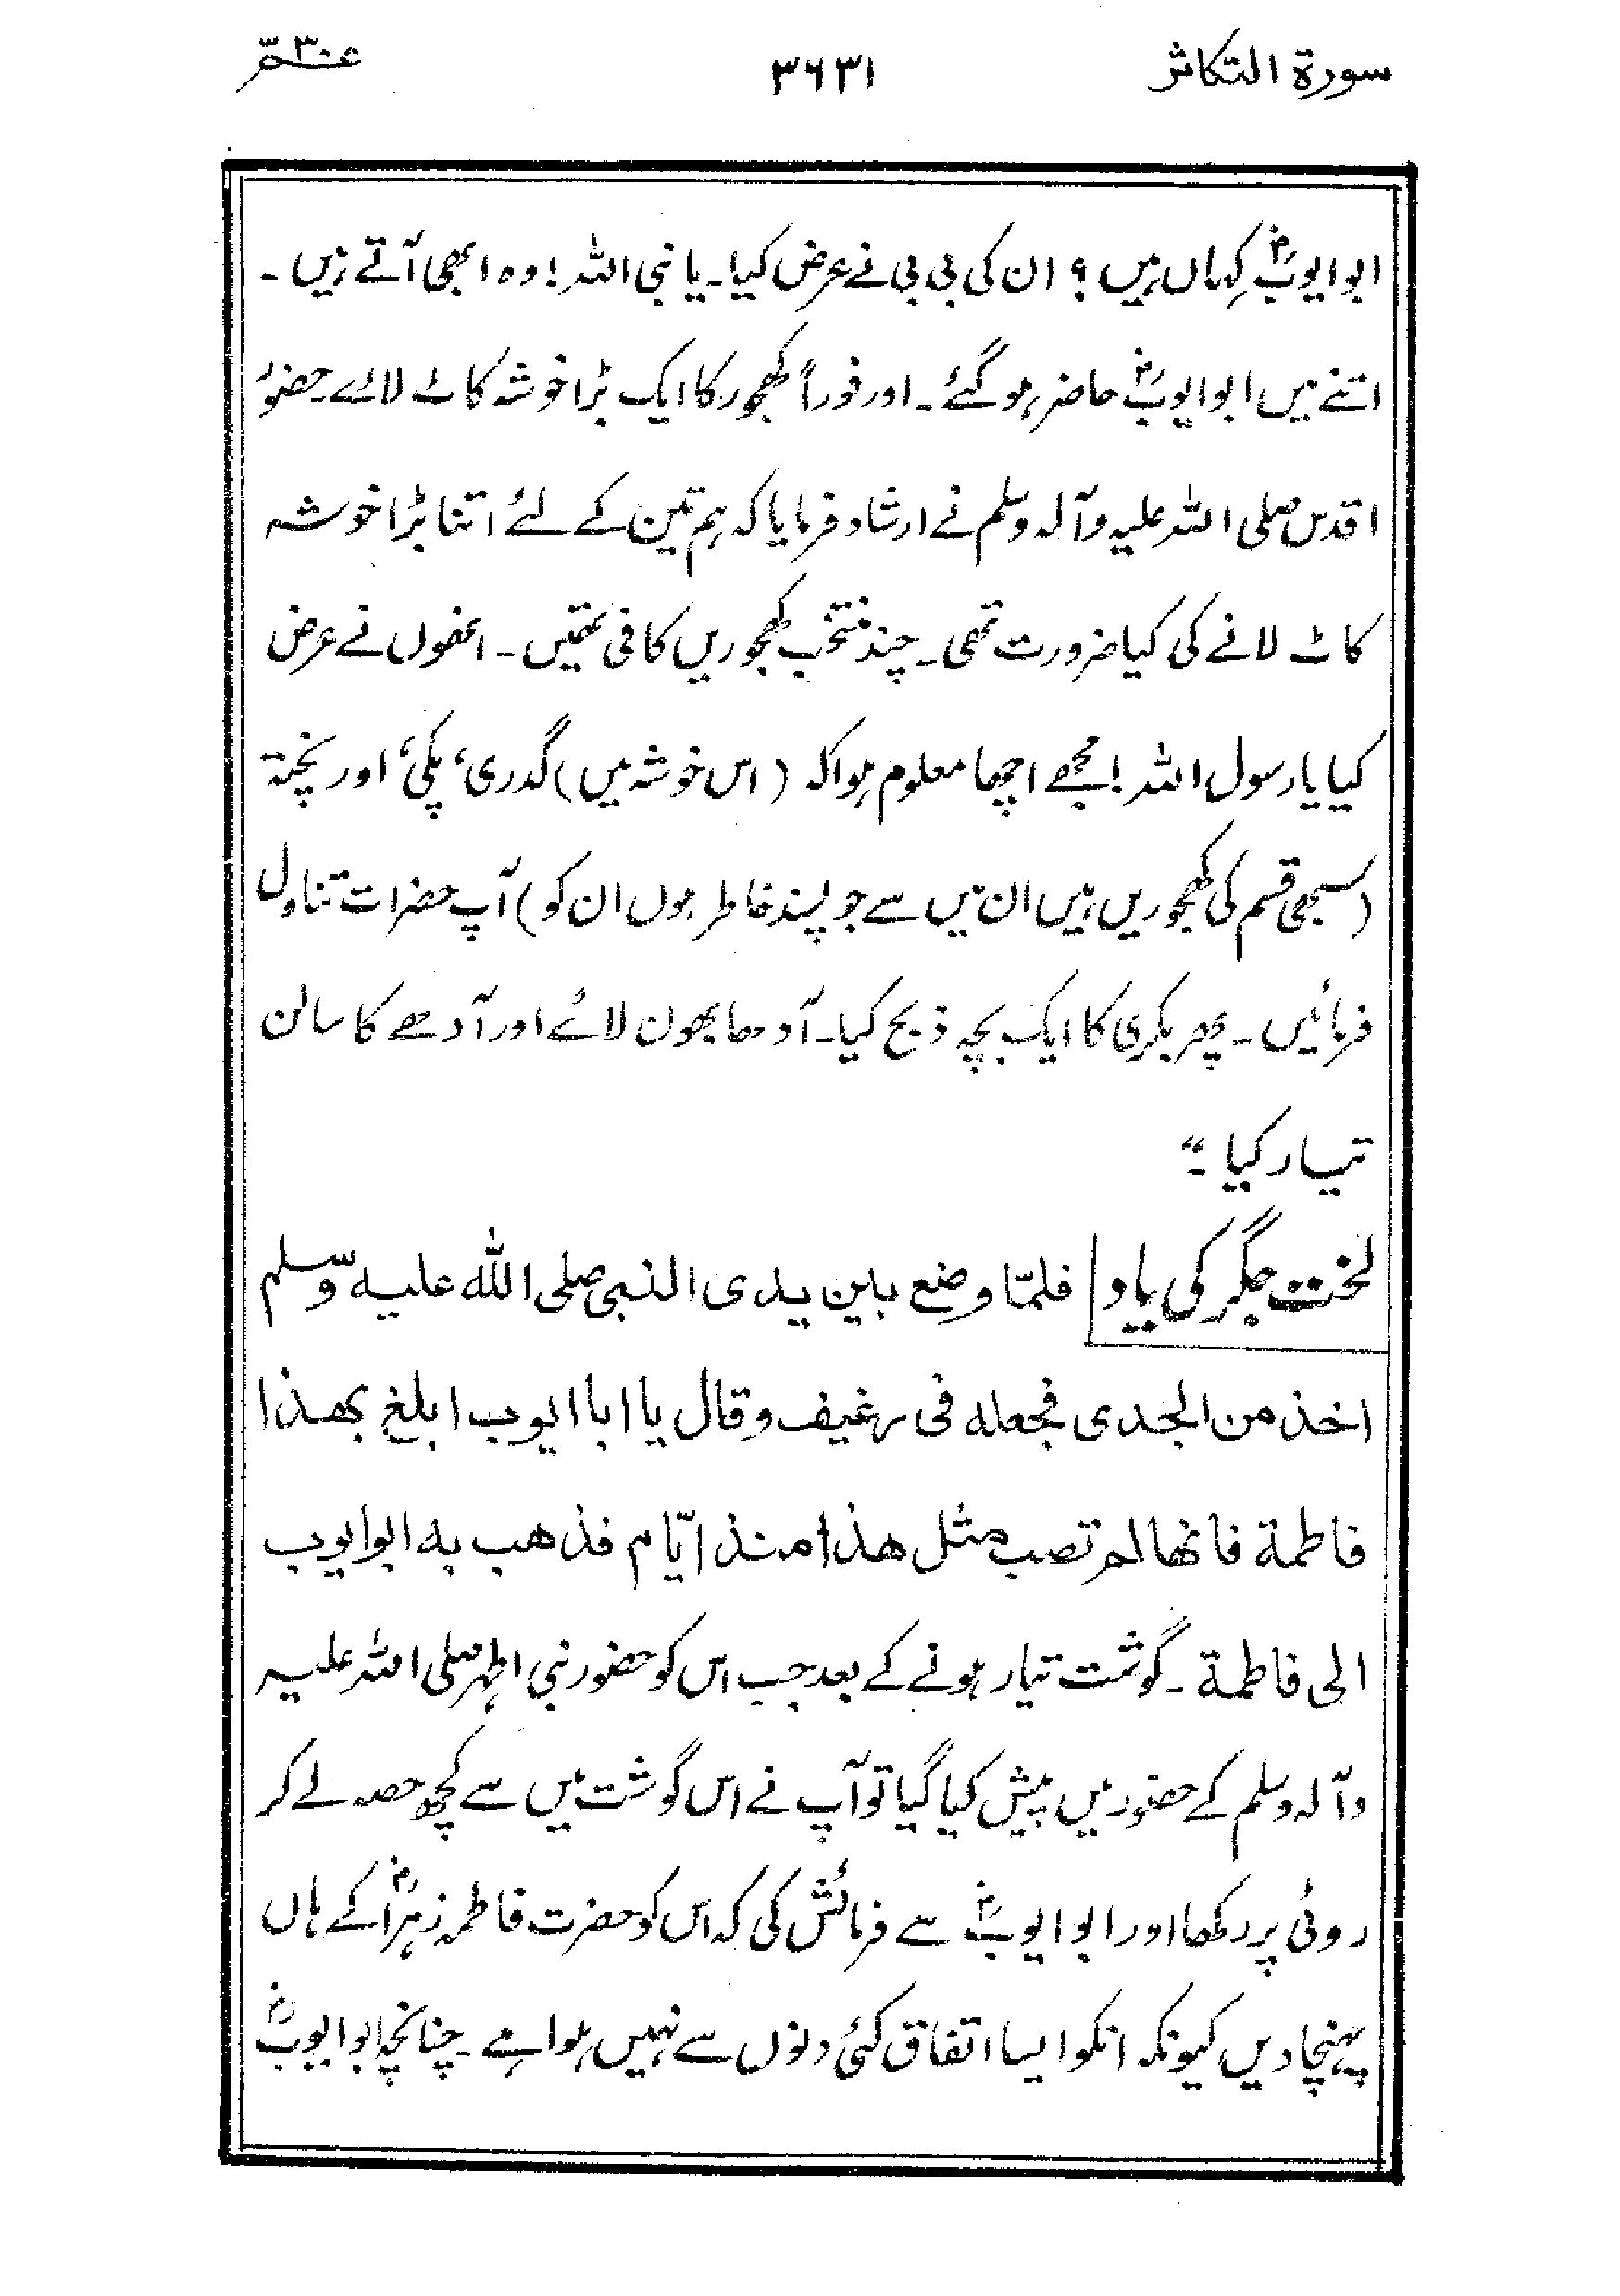 سورة التکاثر ۳۶۳۱ عمّ ۳۰
ابو ایوبؓ کہاں ہیں؟ ان کی بی بی نے عرض کیا۔ یا نبی اللہ! وہ ابھی آتے ہیں۔
اتنے میں ابو ایوبؓ حاضر ہو گئے۔ اور فوراً کھجور کا ایک بڑا خوشہ کاٹ لائے۔ حضورؐ
اقدس صلی اللہ علیہ وآلہ وسلم نے ارشاد فرمایا کہ ہم تین کے لئے اتنا بڑا خوشہ
کاٹ لانے کی کیا ضرورت تھی۔ چند منتخب کھجوریں کافی تھیں۔ انھوں نے عرض
کیا یا رسول اللہ! مجھے اچھا معلوم ہوا کہ (اس خوشہ میں) گدری، پکی، اور پختہ
(سبھی قسم کی کھجوریں ہیں ان میں سے جو پسند خاطر ہوں ان کو) آپ حضرات تناول
فرمائیں۔ پھر بکری کا ایک بچہ ذبح کیا۔ آدھا بھون لائے اور آدھے کا سالن
تیار کیا۔“
لخت جگر کی یاد فلمّا وضع بین یدی النبی صلی اللہ علیہ وسلّم
اخذ من الجدی فجعله فی رغیف وقال یا ابا ایوب ابلغ بھذا
فاطمة فانھا لم تصب مثل ھذا منذ ایّام فذھب به ابو ایوب
الی فاطمة۔ گوشت تیار ہونے کے بعد جب اس کو حضور نبی اطہر صلی اللہ علیہ
وآلہ وسلم کے حضور میں پیش کیا گیا تو آپ نے اس گوشت میں سے کچھ حصہ لے کر
روٹی پر رکھا اور ابو ایوبؓ سے فرمائش کی کہ اس کو حضرت فاطمہ زہراؓ کے ہاں
پہنچا دیں کیونکہ انکو ایسا اتفاق کئی دنوں سے نہیں ہوا ہے۔ چنانچہ ابو ایوبؓ